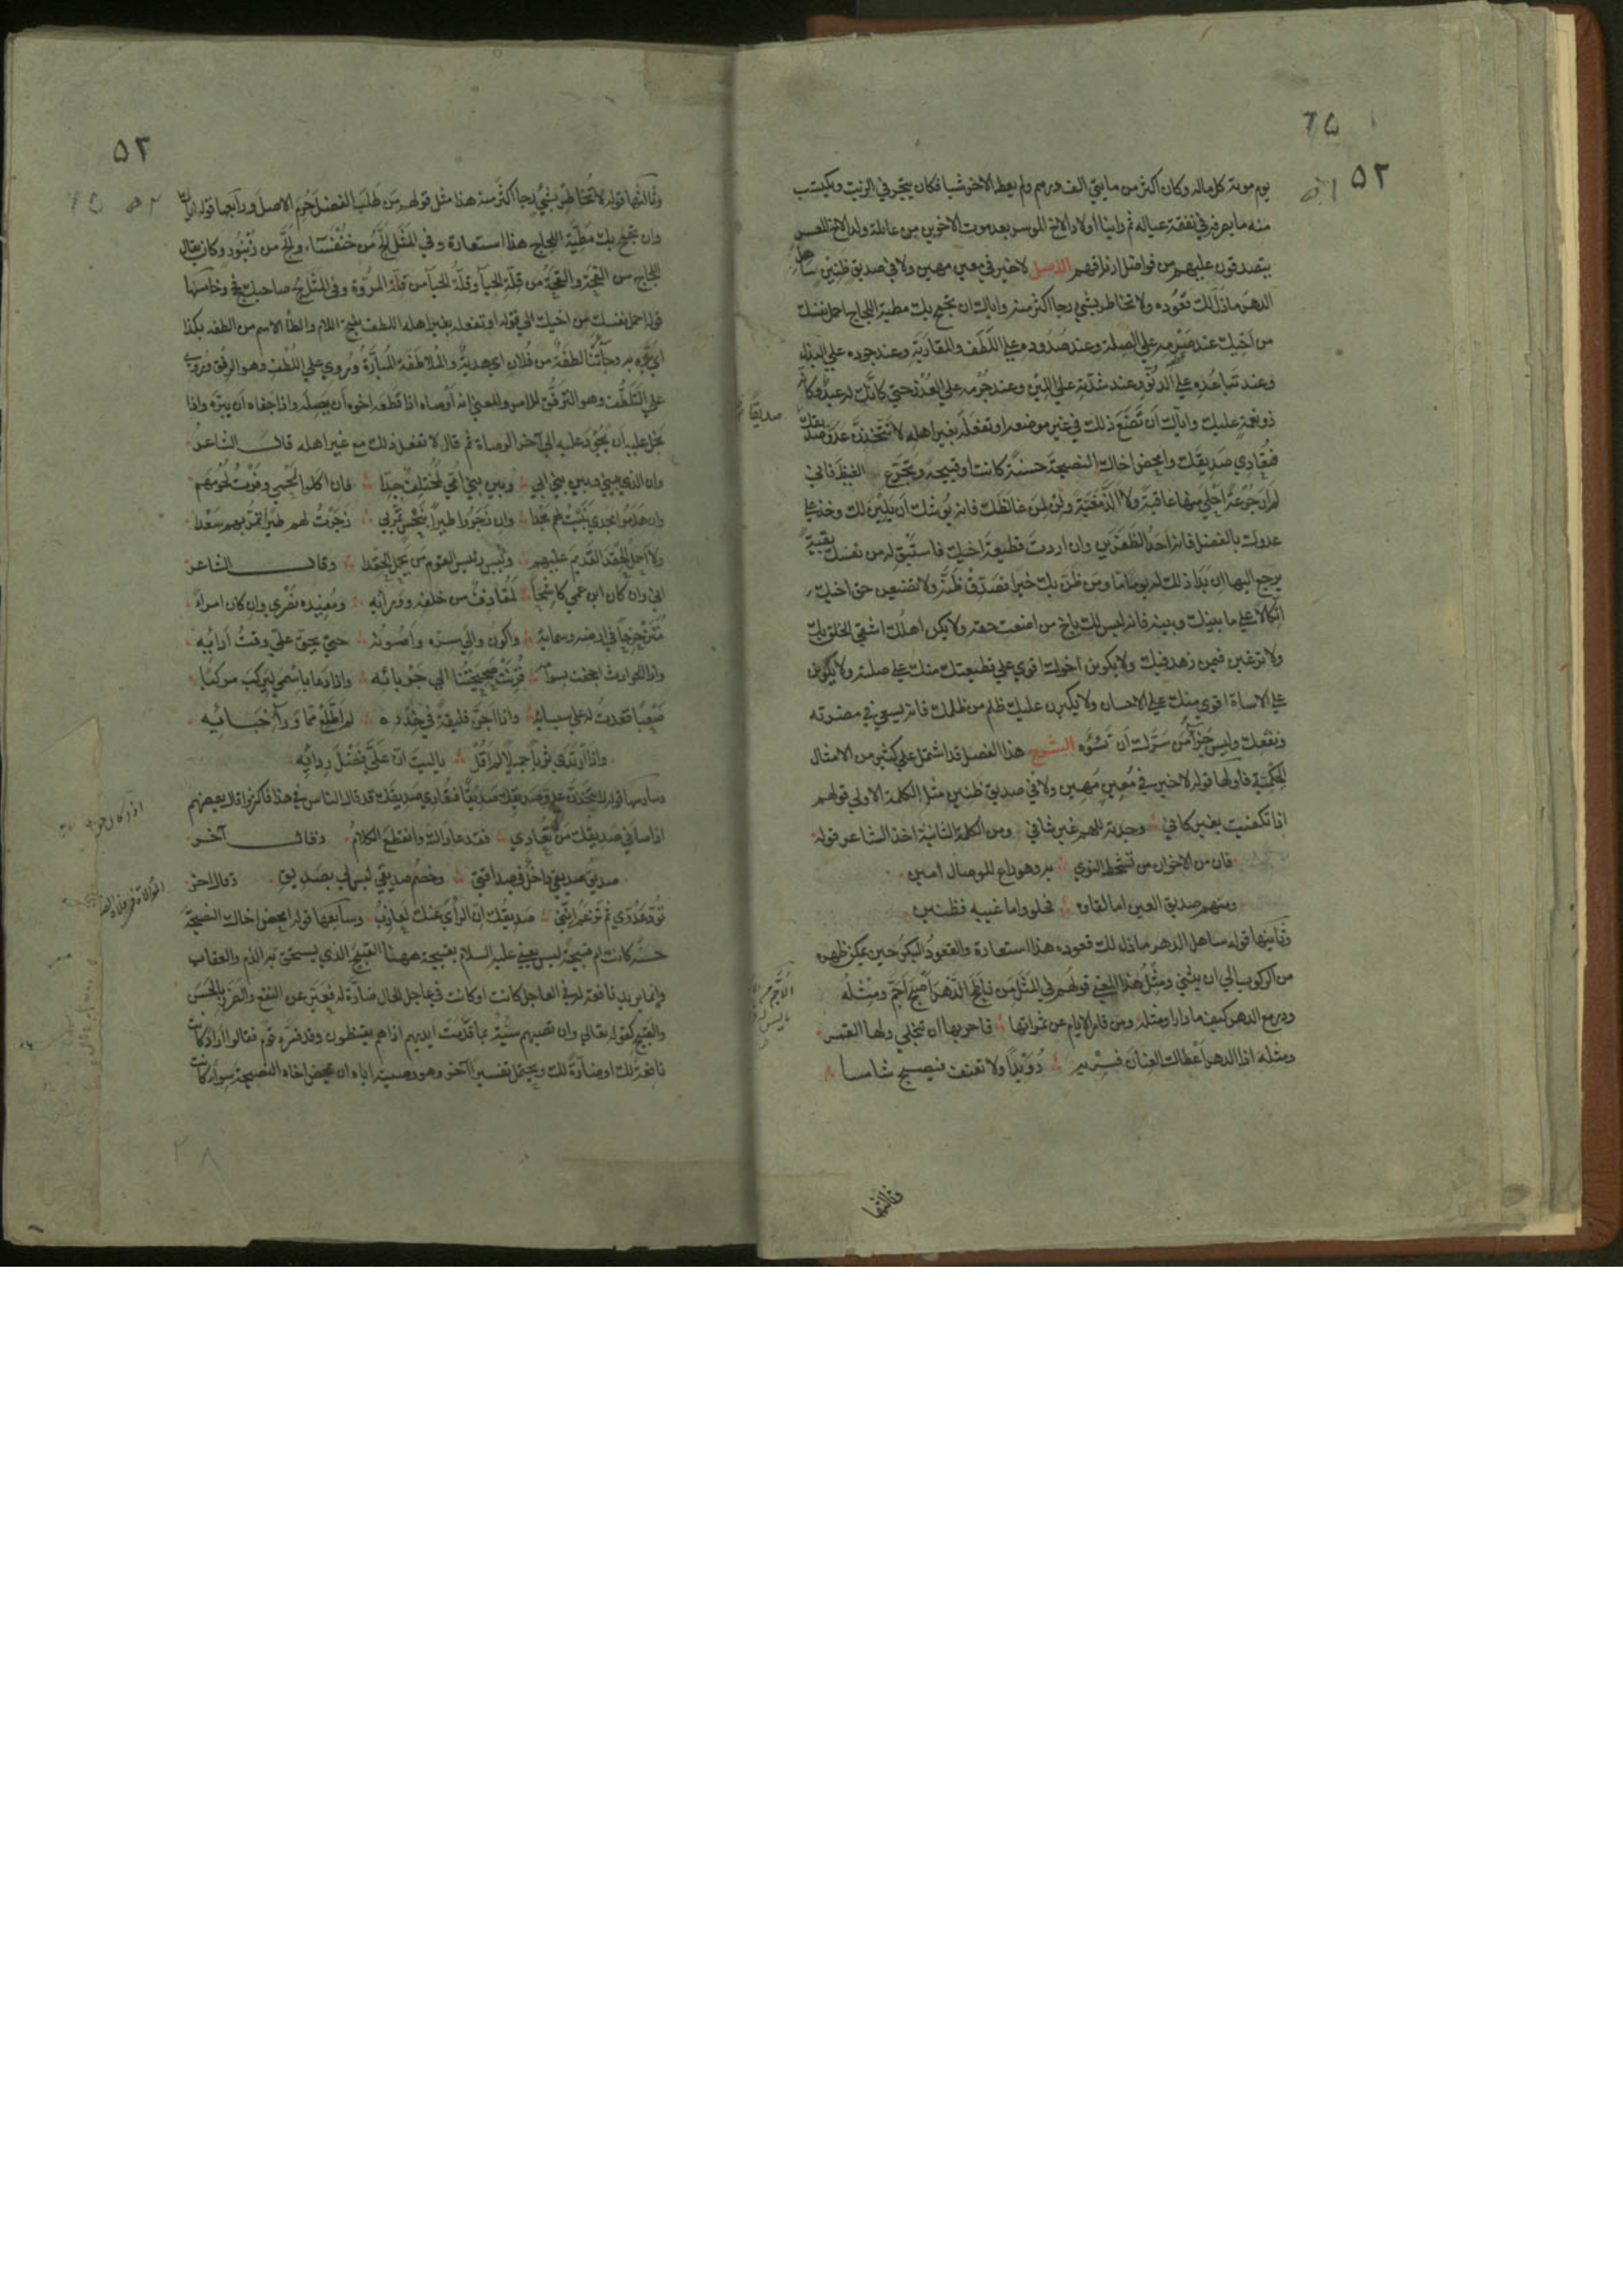 ٥٢
يوم موته كل ماله وكان اكثر من مايتي الف درهم ولم يعط الاخر شيا فكان يتجر في الزيت ويكتسب
منه ما يصرفه في نفقة عياله ثم راينا اولاد الاخ الموسر بعد موت الاخوين من عايلة ولد الاخ المعسر
يتصدقون عليهم من فواضل ارزاقهم الاصل لا خير في معين مهين ولا في صديق ظنين ساهل
الدهر ما ذل لك قعوده ولا تخاطر بشي رجا اكثر منه واياك ان تجمح بك مطية اللجاج احمل نفسك
من اخيك عند صرمه علي الصلة وعند صدوده علي اللطف والمقاربة وعند جموده علي البذل
وعند تباعده علي الدنو وعند شدته علي اللين وعند جرمه علي العذر حتي كانك له عبد وكانه
ذو نعمة عليك واياك ان تضع ذلك في غير موضعه او تفعله بغير اهله لا تتخذن عدو صديقك
صديقا
فتعادي صديقك وامحض اخاك النصيحة حسنة كانت او قبيحة وتجرع الغيظ فاني
لم ار جرعة احلي منها عاقبة ولا الذ مغبة ولن لمن غالظك فانه يوشك ان يلين لك وخذ علي
عدوك بالفضل فانه احد الظفرين وان اردت قطيعة اخيك فاستبق له من نفسك بقية
يرجع اليها ان بدا ذلك له يوما ما ومن ظن بك خيرا فصدق ظنه ولا تضيعن حق اخيك
اتكالا علي ما بينك وبينه فانه ليس لك باخ من اضعت حقه ولا يكن اهلك اشقي الخلق بك
ولا ترغبن فيمن زهد فيك ولا يكونن اخوك اقوي علي قطيعتك منك علي صلته ولا يكونن
علي الاساة اقوي منك علي الاحسان ولا يكبرن عليك ظلم من ظلمك فانه يسعي في مضرته
ونفعك وليس جزآء من سرك ان تسؤه الشرح هذا الفصل قد اشتمل علي كثير من الامثال
الحكمية فاولها قوله لا خير في معين مهين ولا في صديق ظنين مثل الكلمة الاولي قولهم
اذا تكفيت بغير كافي وجدته للهم غير شافي ومن الكلمة الثانية اخذ الشاعر قوله
فان من الاخوان من شحط النوي به وهو داع للوصال امين
ومنهم صديق العين اما لقاوه فحلو واما غيبه فظنين
وثانيها قوله ساهل الدهر ما ذل لك قعوده هذا استعارة والقعود البكر حين يمكن ظهره
من الركوب الي ان يثني ومثل هذا المعني قولهم في المثل من ناطح الدهر اصبح اجم ومثله
ودر مع الدهر كيف ما دارا ومثله ومن قامر الايام عن ثمراتها فاحر بها ان تنجلي ولها القمر
ومثله اذا الدهر اعطاك العنان فسر به رويدا ولا تعنف فيصبح شامسا
وثالثها
٥٣
وثالثها قوله لا تخاطر بشي رجا اكثر منه هذا مثل قولهم من طلب الفضل حرم الاصل ورابعها قوله اياك
وان تجمح بك مطية اللجاج هذا استعارة وفي المثل الج من خنفساء والج من زنبور وكان يقال
اللجاج من القحة والقحة من قلة الحيآ وقلة الحيآ من قلة المروة وفي المثل لج صاحبك فحج وخامسها
قوله احمل نفسك من اخيك الي قوله او تفعله بغير اهله اللطف بفتح اللام والطآ الاسم من الطفه بكذا
اي بره به وجآتنا لطفة من فلان اي هدية والملاطفة المبارة وروي علي اللطف وهو الرفق
علي التلطف وهو الترفق للامر والمعني انه اوصاه اذا قطعه اخوه ان يصله واذا جفاه ان يبره واذا
بخل عليه ان يجود عليه الي آخر الوصاة ثم قال لا تفعل ذلك مع غير اهله قال الشاعر
وان الذي بيني وبين بني ابي وبين بني امي لمختلف جدا فان اكلوا لحمي وفرت لحومهم
وان هدموا مجدي بنيت لهم مجدا وان زجروا طيرا بنحس تمر بي زجرت لهم طيرا تمر بهم سعدا
ولا احمل الحقد القديم عليهم وليس رئيس القوم من يحمل الحقدا وقال الشاعر
اني وان كان ابن عمي كاشحا لمقاذف من خلفه وورآئه ومفيده نصري وان كان امرا
متزحزحا في ارضه وسمائه واكون والي سره واصونه حتي يحق علي وقت ادائه
واذا الحوادث اجحفت بسوامه قرنت صحيحتنا الي جربائه واذا دعا باسمي ليركب مركبا
صعبا قعدت له علي سيسائه واذا اجن فليقة في خدره لم اطلع مما ورآء خبائه
واذا ارتدي ثوبا جميلا لم اقل يا ليت ان علي فضل ردائه
وسادسها قوله لا تتخذن عدو صديقك صديقا فتعادي صديقك قد قال الناس في هذا فاكثروا قال بعضهم
اذا صافي صديقك من تعادي فقد عاداك وانقطع الكلام وقال آخر
صديق صديقي داخل في صداقتي وخصم صديقي ليس لي بصديق وقال اخر
تود عدوي ثم تزعم انني صديقك ان الرأي عنك لعازب وسابعها قوله امحض اخاك النصيحة
حسنة كانت ام قبيحة ليس يعني عليه السلام بقبيحة ههنا القبيح الذي يستحق به الذم والعقاب
وانما يريد نافعة له في العاجل كانت او كانت في عاجل الحال ضارة له فعبر عن النفع والضرر بالحسن
والقبيح كقوله تعالي وان تصبهم سيئة بما قدمت ايديهم اذا هم يقنطون وقد فسره قوم فقالوا اراد كانت
نافعة لك او ضارة لك ويحتمل تفسيرا آخر وهو وصيته اياه ان يمحض اخاه النصيحة سوآء كانت